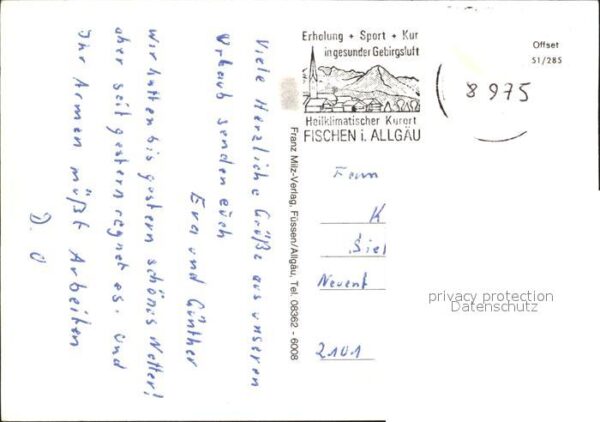 Viele Herzliche Grüße aus unseren
Urlaub senden eüch
Eva und Günther
wir hatten bis gestern schönes Wetter!
aber seit gestern regnet es. und
Ihr Armen müßt Arbeiten
D. O
Franz Milz-Verlag, Füssen/Allgäu, Tel. 08362 - 6008
Erholung + Sport + Kur
in gesunder Gebirgsluft
Heilklimatischer Kurort
FISCHEN i. ALLGÄU
Offset
51/285
8975
Fam
K
Siel
Neuent
2101
privacy protection
Datenschutz